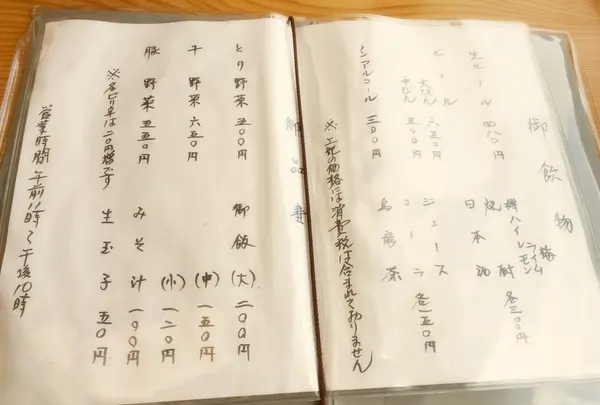 御飲物
生ビール 四八〇円
ビール 大びん 六五〇円
中びん 五〇〇円
ノンアルコール 三〇〇円
酎ハイ レモン ライム 梅
焼酎 各三〇〇円
日本酒
ジュース
コーラ 各一五〇円
烏龍茶
※上記の価格には消費税は含まれておりません
とり野菜 五〇〇円
牛野菜 六五〇円
豚野菜 五五〇円
※名どり
は二〇円増です
御飯 (大) 二〇〇円
(中) 一五〇円
(小) 一二〇円
みそ汁 一〇〇円
生玉子 五〇円
営業時間 午前11時〜午後10時